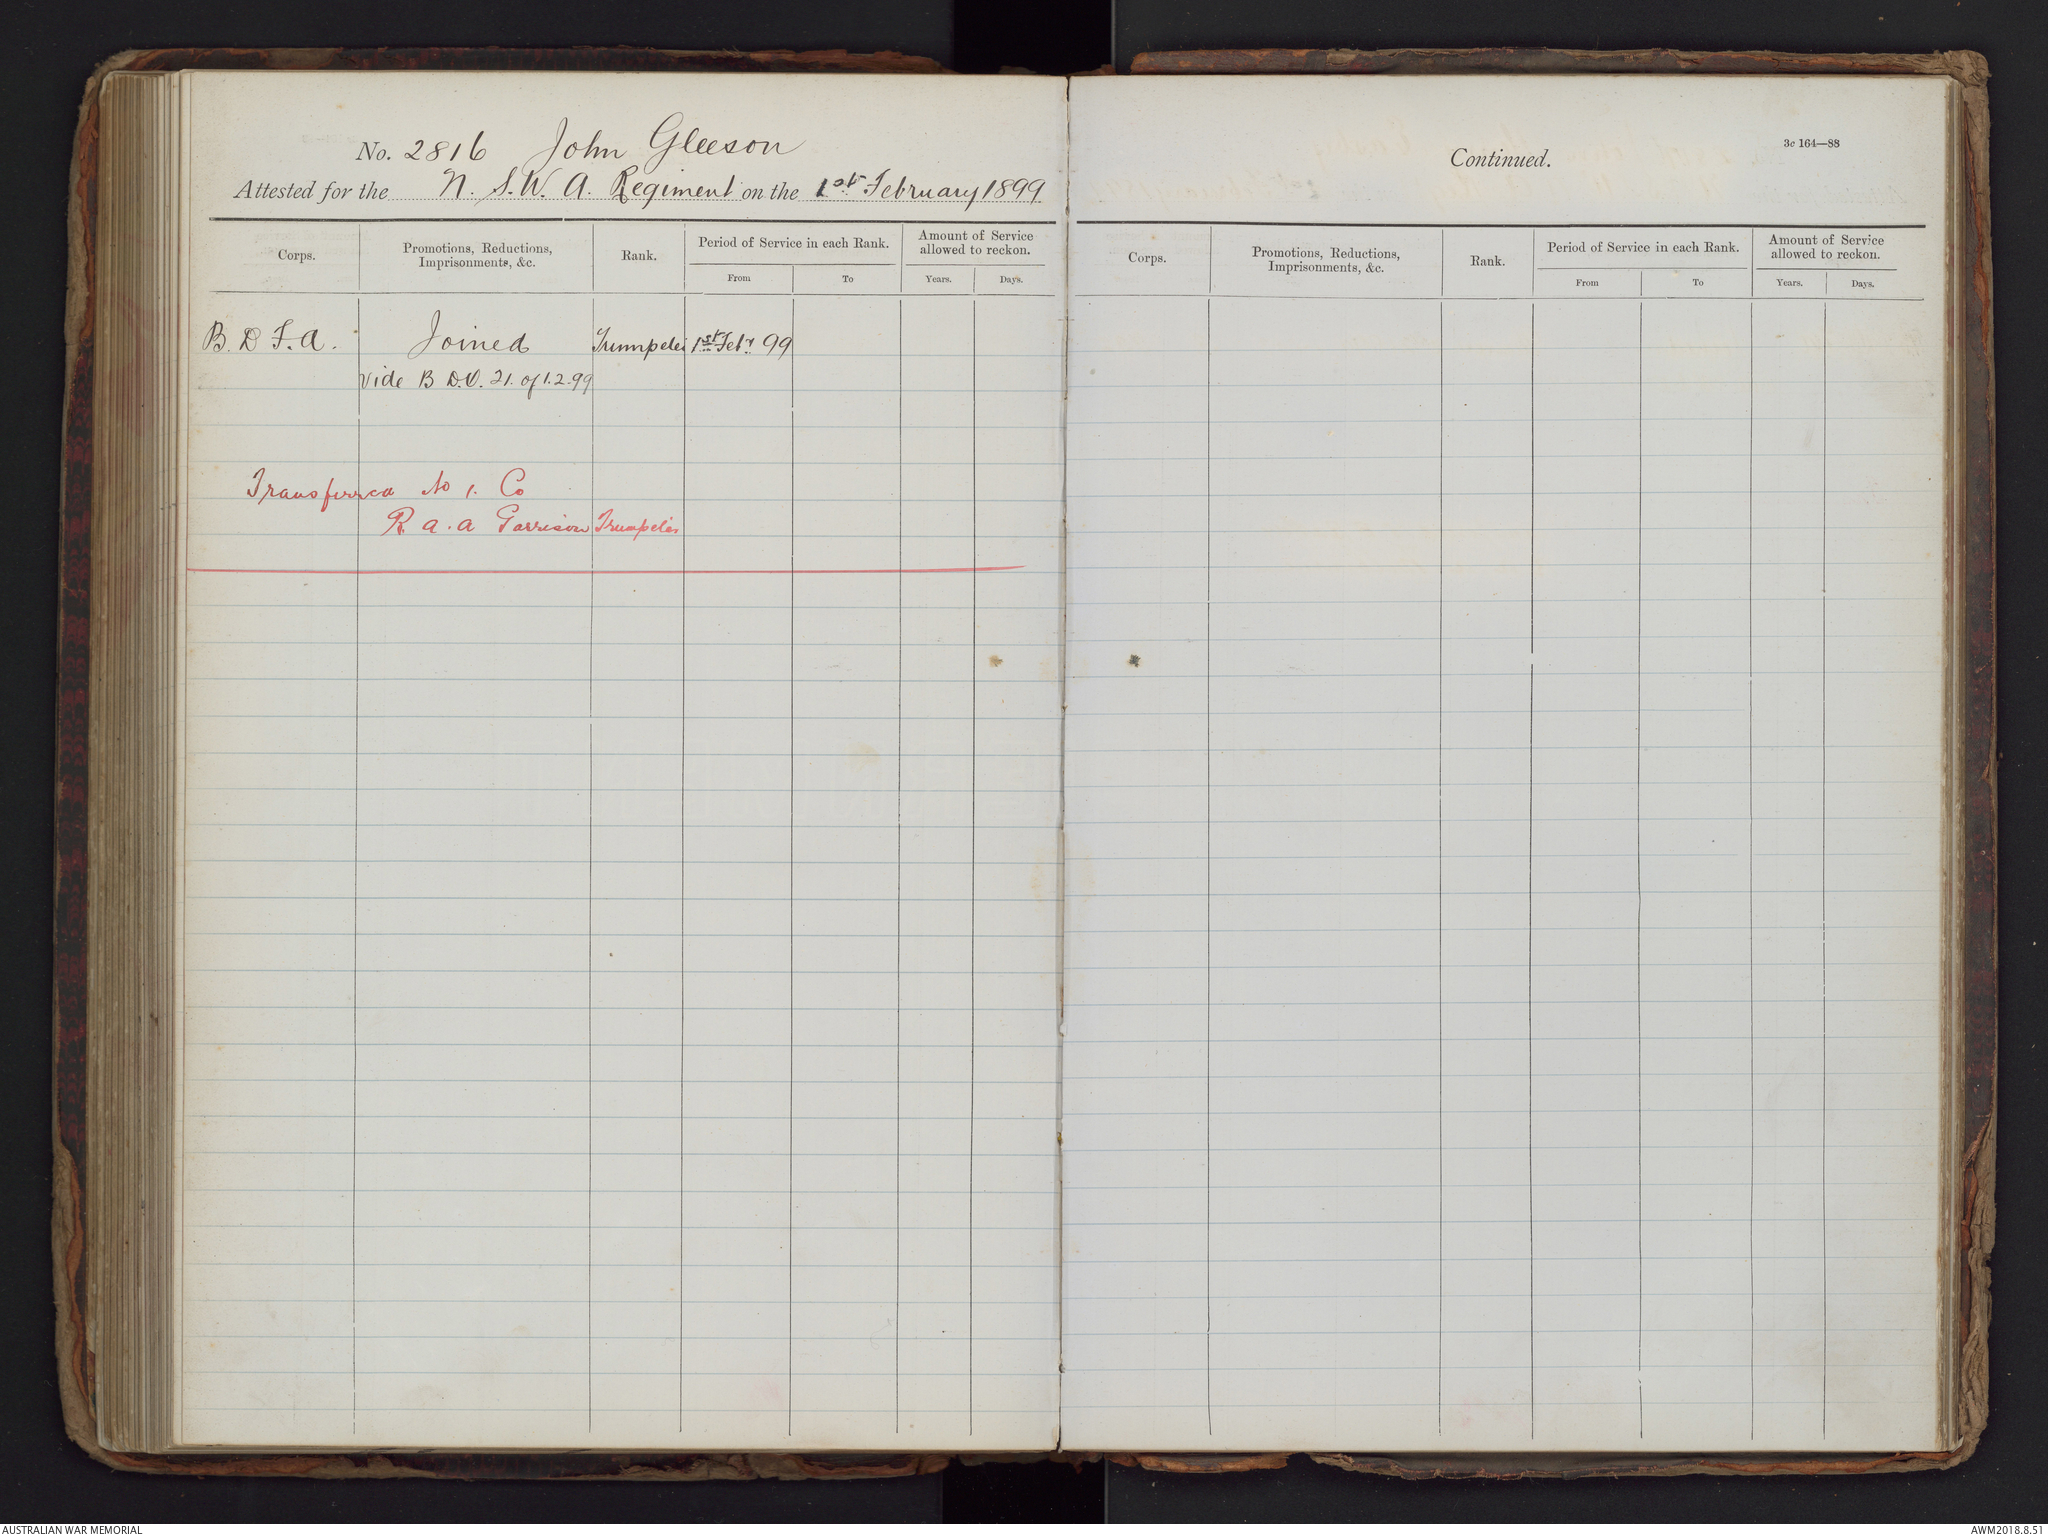 No. 2816 John Gleeson
Attested for the N. S. W. A. Regiment on the 1st February 1899
Corps. Promotions, Reductions, Imprisonments, &c. Rank. Period of Service in each Rank. From To Amount of Service allowed to reckon. Years. Days.
B. D F. A. Joined Trumpeter 1st Feby 99
vide B D.O. 21. of 1.2.99
Transferred No 1. Co
R. A. A Garrison Trumpeter
3c 164—88
Continued.
Corps. Promotions, Reductions, Imprisonments, &c. Rank. Period of Service in each Rank. From To Amount of Service allowed to reckon. Years. Days.
AUSTRALIAN WAR MEMORIAL
AWM2018.8.51